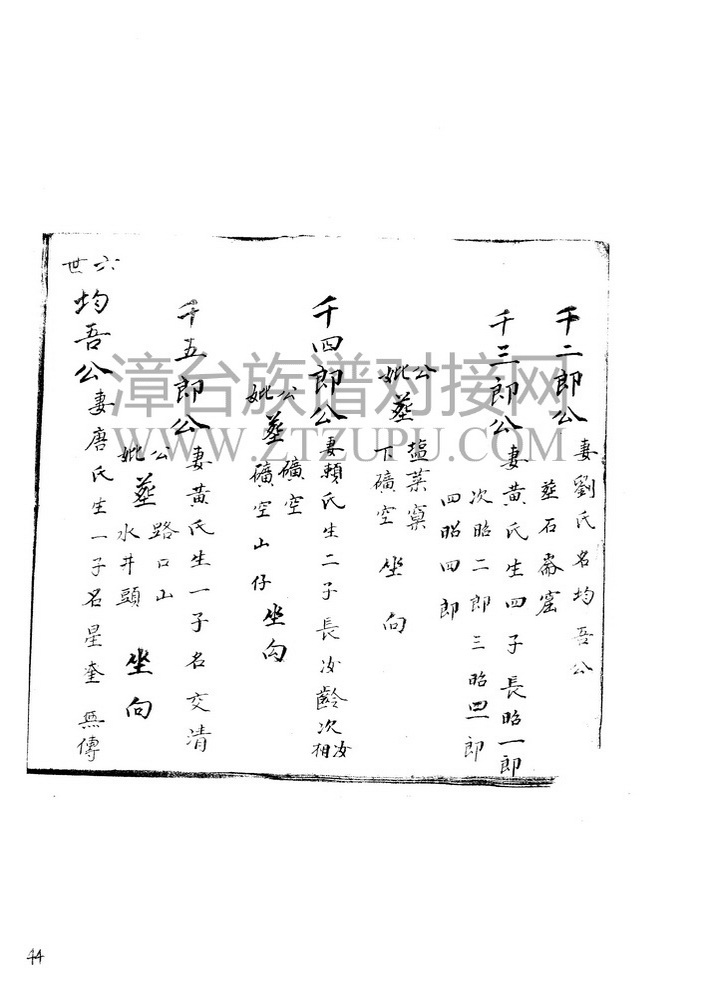 千二郎公 妻劉氏名均吾公
葬石崙窟
千三郎公 妻黄氏生四子長昭一郎
次昭二郎三昭三郎
四昭四郎
公妣葬 塩菜窠 下礦空 坐向
千四郎公 妻賴氏生二子長汝齡次汝相
公妣葬 礦空 礦空山仔 坐向
千五郎公 妻黄氏生一子名交清
公妣葬 路口山 水井頭 坐向
六世
均吾公 妻唐氏生一子名星奎 無傳
漳台族谱对接网
WWW.ZTZUPU.COM
44